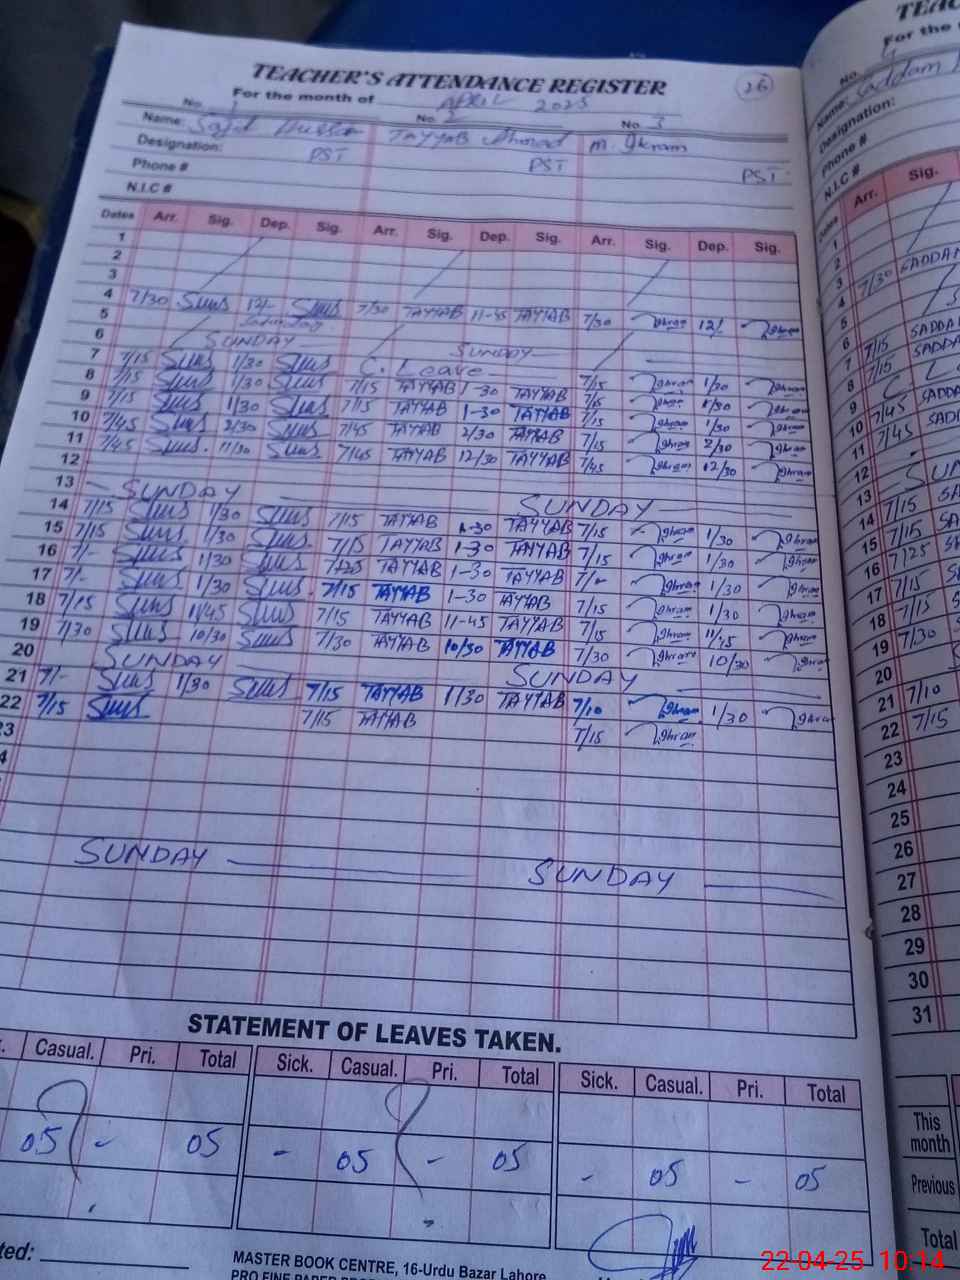 TEACHER'S ATTENDANCE REGISTER
26
For the month of April 2025
No. 1 No. 2 No. 3
Name: Sajid TAYYAB Ahmad M. Ikram
Designation: PST PST PST
Phone #
N.I.C #
Dates Arr. Sig. Dep. Sig. Arr. Sig. Dep. Sig. Arr. Sig. Dep. Sig.
1
2
3
4 7/30 12/- 7/30 TAYYAB 11-45 TAYYAB 7/30 Ikram 12/- Ikram
5 Saturday
6 SUNDAY SUNDAY
7 7/15 1/30 C. Leave 7/15 Ikram 1/30 Ikram
8 7/15 1/30 7/15 TAYYAB 1-30 TAYYAB 7/15 Ikram 1/30 Ikram
9 7/15 1/30 7/15 TAYYAB 1-30 TAYYAB 7/15 Ikram 1/30 Ikram
10 7/45 2/30 7/45 TAYYAB 2/30 TAYYAB 7/15 Ikram 2/30 Ikram
11 7/45 11/30 7/45 TAYYAB 12/30 TAYYAB 7/45 Ikram 12/30 Ikram
12
13 SUNDAY SUNDAY
14 7/15 1/30 7/15 TAYYAB 1-30 TAYYAB 7/15 Ikram 1/30 Ikram
15 7/15 1/30 7/15 TAYYAB 1-30 TAYYAB 7/15 Ikram 1/30 Ikram
16 7/- 1/30 7/25 TAYYAB 1-30 TAYYAB 7/- Ikram 1/30 Ikram
17 7/- 1/30 7/15 TAYYAB 1-30 TAYYAB 7/15 Ikram 1/30 Ikram
18 7/15 11/45 7/15 TAYYAB 11-45 TAYYAB 7/15 Ikram 11/45 Ikram
19 7/30 10/30 7/30 TAYYAB 10/30 TAYYAB 7/30 Ikram 10/30 Ikram
20 SUNDAY SUNDAY
21 7/- 1/30 7/15 TAYYAB 1/30 TAYYAB 7/10 Ikram 1/30 Ikram
22 7/15 7/15 TAYYAB 7/15 Ikram
3
4
SUNDAY SUNDAY
STATEMENT OF LEAVES TAKEN.
Casual. Pri. Total Sick. Casual. Pri. Total Sick. Casual. Pri. Total
05 - 05 - 05 - 05 - 05 - 05
ted:
MASTER BOOK CENTRE, 16-Urdu Bazar Lahore
For the
No. 4
Name: Saddam
Designation:
Phone #
N.I.C #
Dates Arr. Sig.
1
2
3
4 7/30 SADDAM
5
6
7 7/15 SADDA
8 7/15 SADDA
9 C L
10 7/45 SADD
11 7/45 SADD
12
13 SUN
14 7/15 SA
15 7/15 SA
16 7/25 SA
17 7/15
18 7/15
19 7/30
20
21 7/10
22 7/15
23
24
25
26
27
28
29
30
31
This month
Previous
Total
22-04-25 10:14